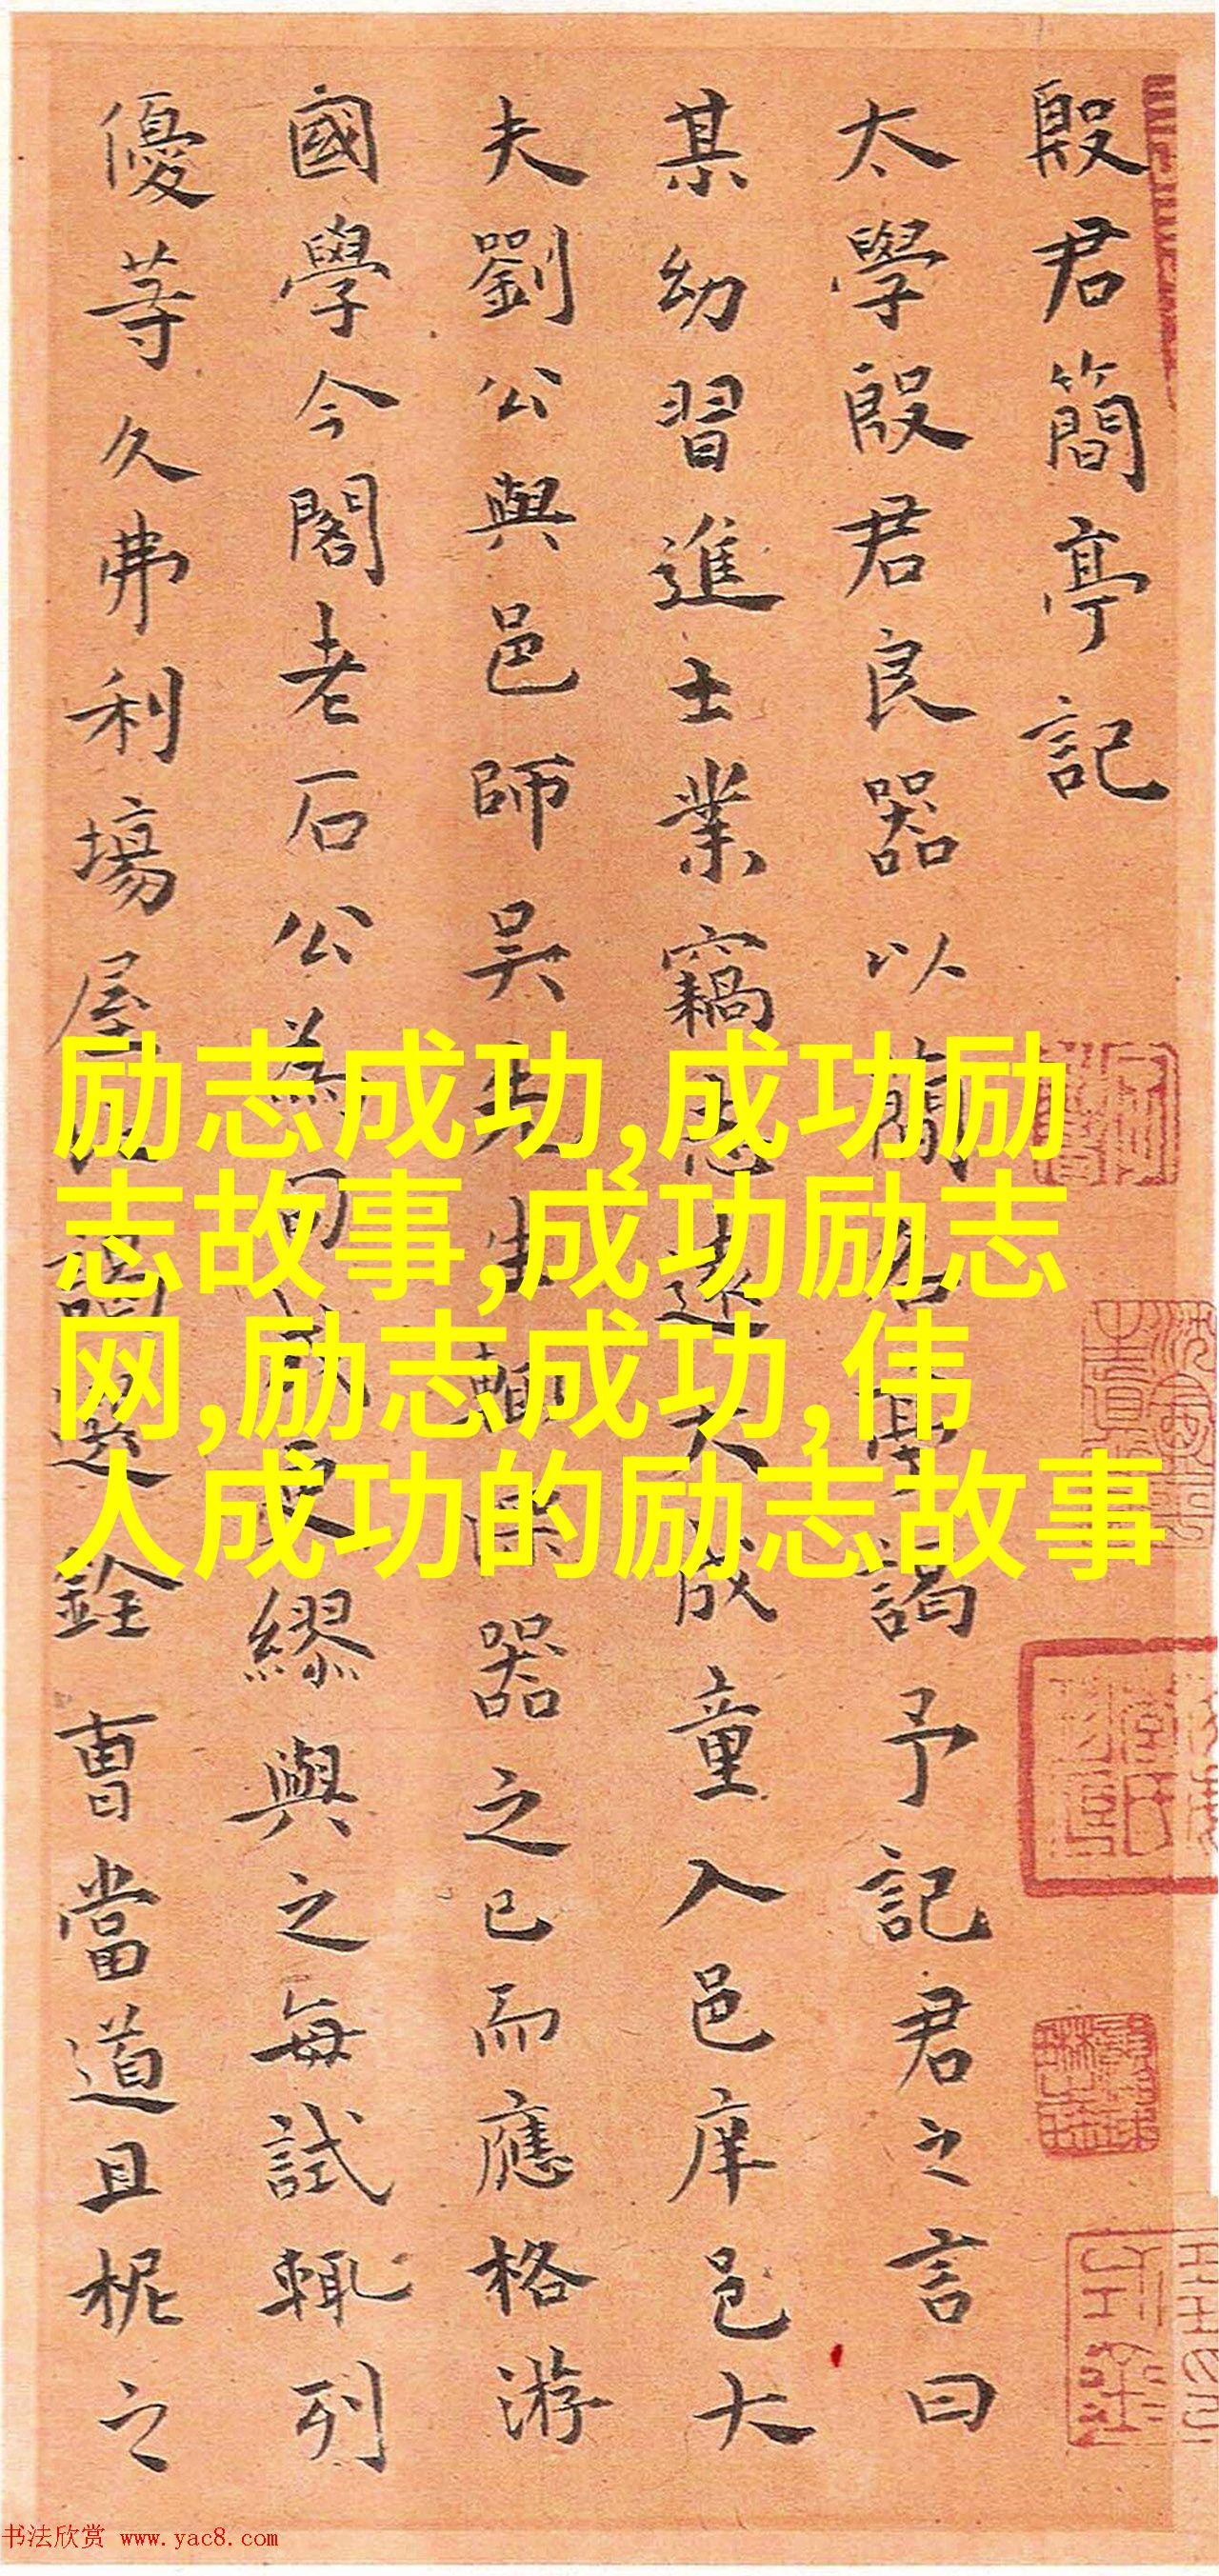 殷君簡亭記
太學殷君良器以簡名亭謁予記君之言曰
某幼習進士業竊志遠大成童入邑庠邑大
夫劉公與邑師吳先生頼
器之已而應格游
國學今閣老石公為
繆與之每試輒列
優等久弗利場屋
選銓曹當道且柅之
励志成功,成功励
志故事,成功励志
网,励志成功,伟
人成功的励志故事
书法欣赏 www.yac8.com